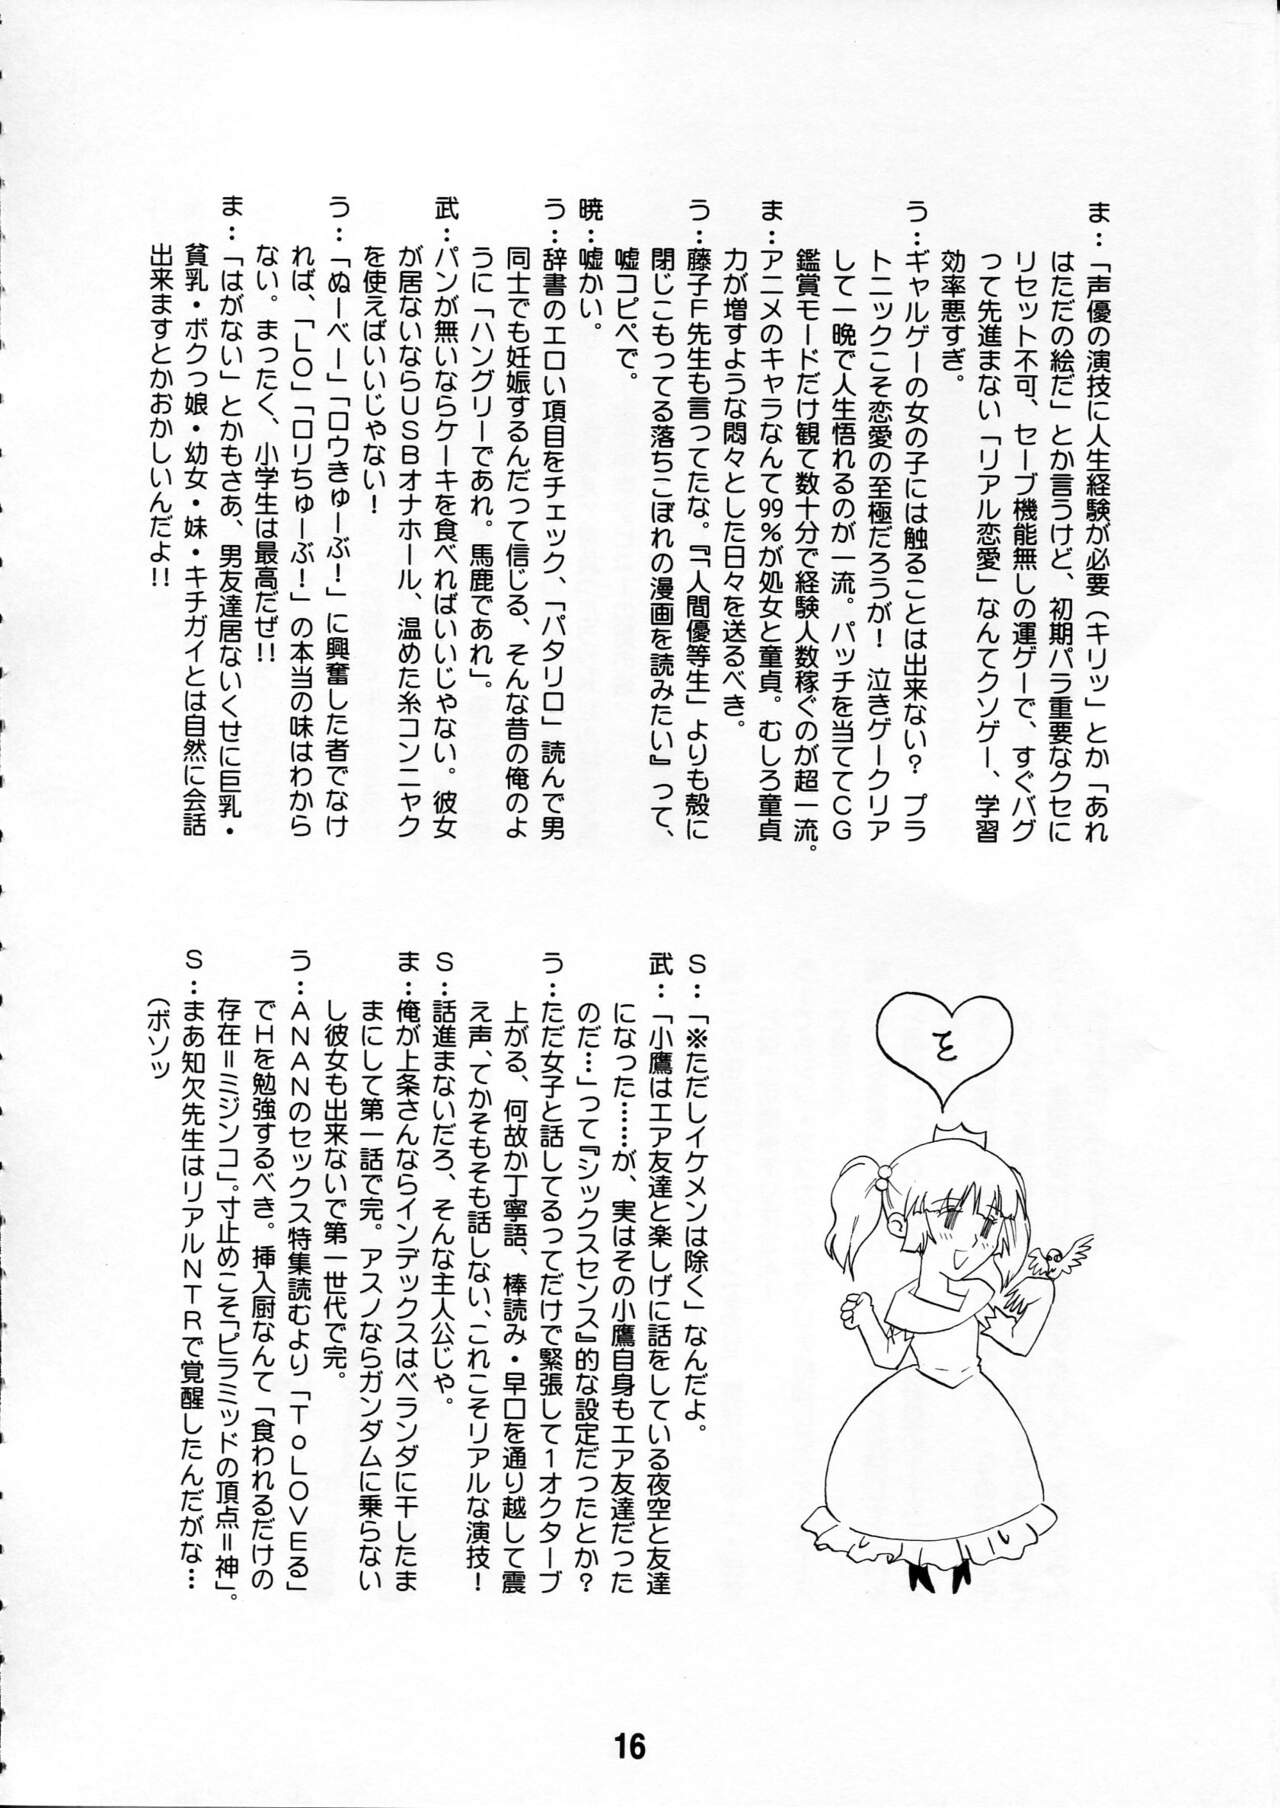 ま：「声優の演技に人生経験が必要（キリッ」とか「あれ
はただの絵だ」とか言うけど、初期パラ重要なクセに
リセット不可、セーブ機能無しの運ゲーで、すぐバグ
って先進まない「リアル恋愛」なんてクソゲー、学習
効率悪すぎ。
う：ギャルゲーの女の子には触ることは出来ない？　プラ
トニックこそ恋愛の至極だろうが！　泣きゲークリア
して一晩で人生悟れるのが一流。パッチを当ててＣＧ
鑑賞モードだけ観て数十分で経験人数稼ぐのが超一流。
ま：アニメのキャラなんて99％が処女と童貞。むしろ童貞
力が増すような悶々とした日々を送るべき。
う：藤子Ｆ先生も言ってたな。『「人間優等生」よりも殻に
閉じこもってる落ちこぼれの漫画を読みたい』って、
嘘コピペで。
暁：嘘かい。
う：辞書のエロい項目をチェック、「パタリロ」読んで男
同士でも妊娠するんだって信じる、そんな昔の俺のよ
うに「ハングリーであれ。馬鹿であれ」。
武：パンが無いならケーキを食べればいいじゃない。彼女
が居ないならＵＳＢオナホール、温めた糸コンニャク
を使えばいいじゃない！
う：「ぬーべー」「ロウきゅーぶ！」に興奮した者でなけ
れば、「ＬＯ」「ロリちゅーぶ！」の本当の味はわから
ない。まったく、小学生は最高だぜ!!
ま：「はがない」とかもさあ、男友達居ないくせに巨乳・
貧乳・ボクっ娘・幼女・妹・キチガイとは自然に会話
出来ますとかおかしいんだよ!!
Ｓ：「※ただしイケメンは除く」なんだよ。
武：「小鷹はエア友達と楽しげに話をしている夜空と友達
になった……が、実はその小鷹自身もエア友達だった
のだ…」って『シックスセンス』的な設定だったとか？
う：ただ女子と話してるってだけで緊張して１オクターブ
上がる、何故か丁寧語、棒読み・早口を通り越して震
え声、てかそもそも話しない、これこそリアルな演技！
Ｓ：話進まないだろ、そんな主人公じゃ。
ま：俺が上条さんならインデックスはベランダに干したま
まにして第一話で完。アスノならガンダムに乗らない
し彼女も出来ないで第一世代で完。
う：ＡＮＡＮのセックス特集読むより「ＴｏＬＯＶＥる」
でＨを勉強するべき。挿入厨なんて「食われるだけの
存在＝ミジンコ」。寸止めこそ「ピラミッドの頂点＝神」。
Ｓ：まあ知欠先生はリアルＮＴＲで覚醒したんだがな…
（ボソッ
を
16